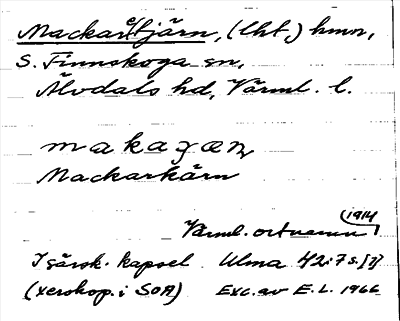 Mackaretjärn, (lht.) hmn,
S. Finnskoga sn,
Älvdals hd, Värml. l.
makaɤæɳ
Mackarkärn
1914
Värml. ortnamn
I särsk. kapsel Ulma 42:7 s. [?]
(xerokop. i SOA) Exc. av E. L. 1966